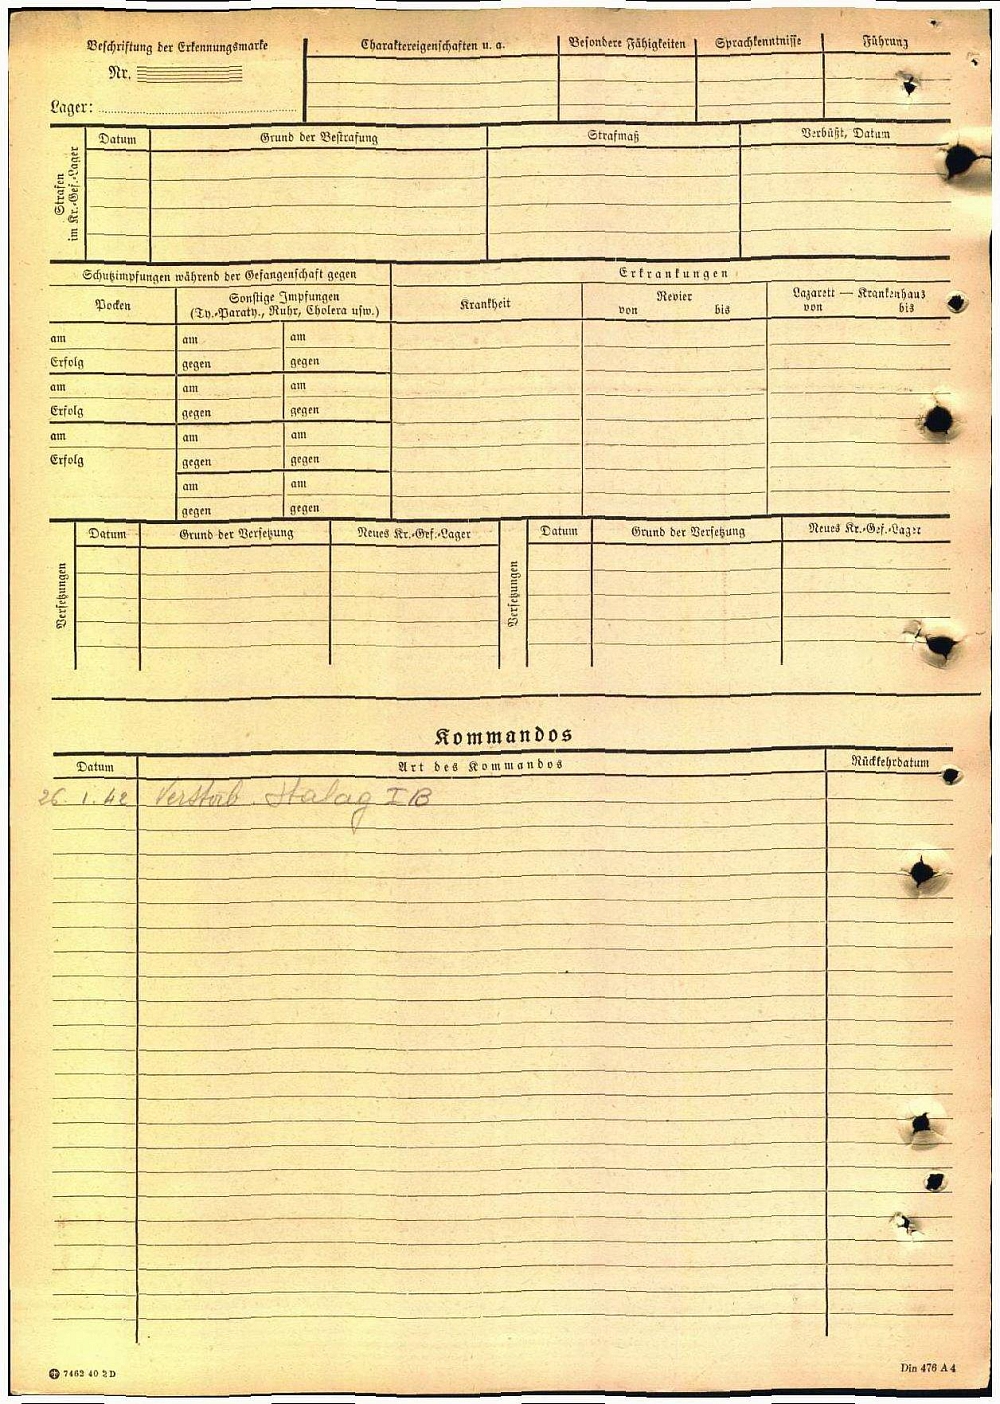 Beschriftung der Erkennungsmarke
Nr.
Lager:
Charaktereigenschaften u. a.
Besondere Fähigkeiten
Sprachkenntnisse
Führung
Strafen
im Kr.-Gef.-Lager
Datum
Grund der Bestrafung
Strafmaß
Verbüßt, Datum
Schutzimpfungen während der Gefangenschaft gegen
Erkrankungen
Pocken
Sonstige Impfungen
(Ty.-Paraty., Ruhr, Cholera usw.)
Krankheit
Revier
von bis
Lazarett — Krankenhaus
von bis
am am am
Erfolg gegen gegen
am am am
Erfolg gegen gegen
am am am
Erfolg gegen gegen
am am
gegen gegen
Versetzungen
Datum
Grund der Versetzung
Neues Kr.-Gef.-Lager
Versetzungen
Datum
Grund der Versetzung
Neues Kr.-Gef.-Lager
Kommandos
Datum
Art des Kommandos
Rückkehrdatum
26. 1. 42 Verstorb. Stalag I B
7462 40 2 D
Din 476 A 4